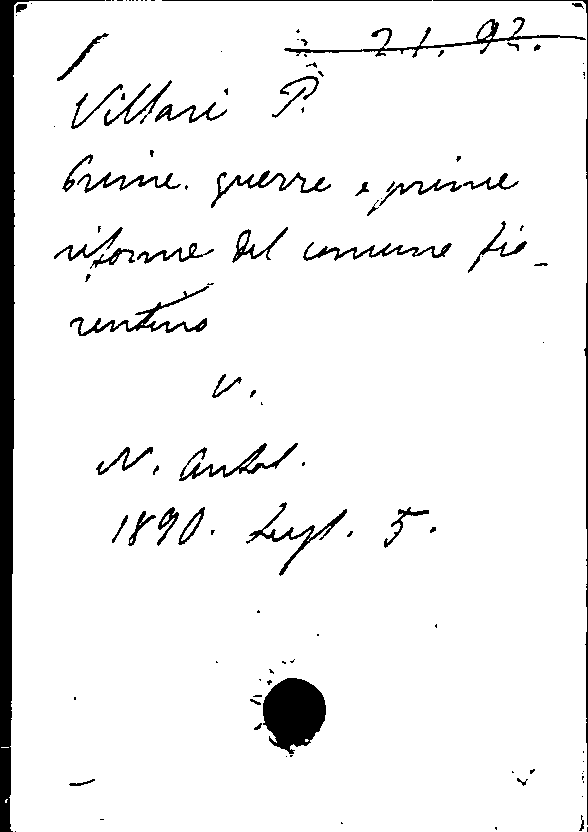 2.1.92.
Villari P.
Prime guerre e prime
riforme del comune fio-
rentino
v.
N. Antol.
1890. Lugl. 5.